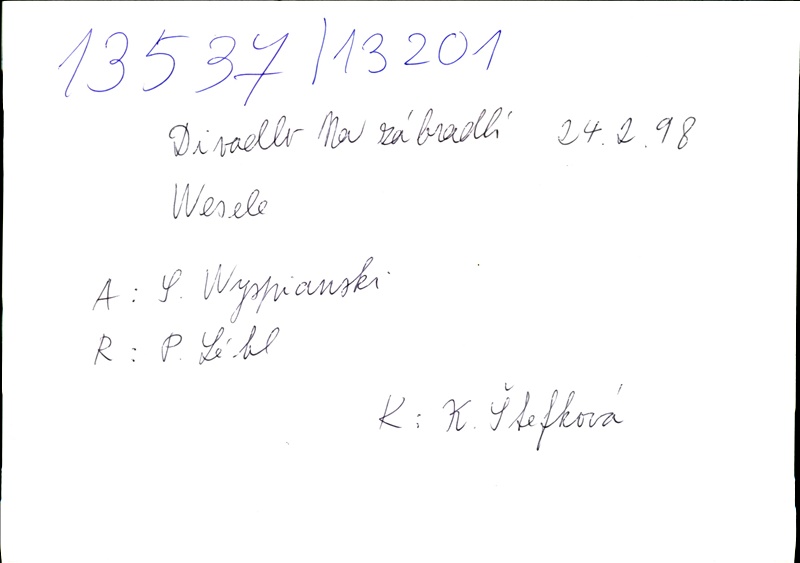 13537/13201
Divadlo Na zábradlí 24.2.98
Wesele
A: S. Wyspianski
R: P. Lébl
K: K. Štefková